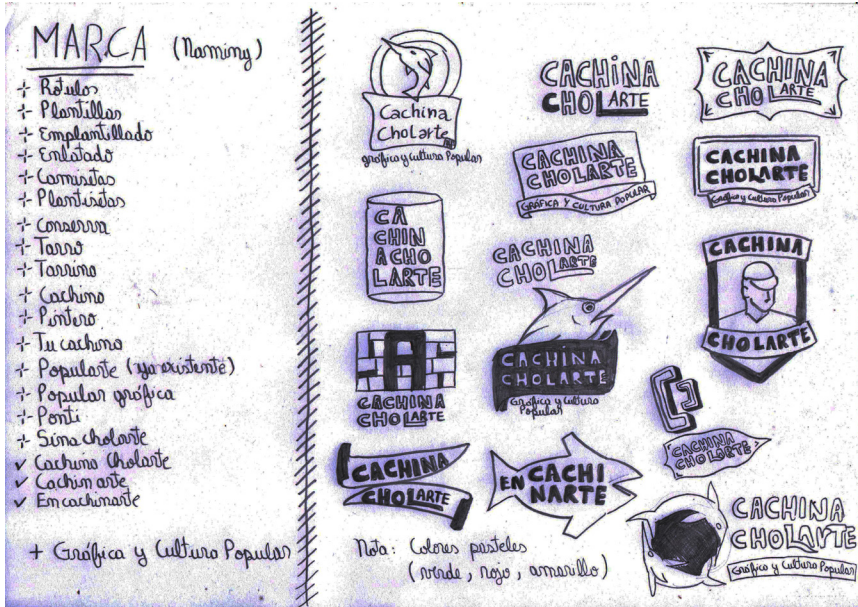 MARCA (Naming)
+ Rótulos
+ Plantillas
+ Emplantillado
+ Enlatado
+ Camisetas
+ Plantisetas
+ Conserva
+ Tarro
+ Tarrino
+ Cachino
+ Pintero
+ Tu cachino
+ Popularte (ya existente)
+ Popular gráfica
+ Ponti
+ Sinacholarte
✓ Cachina Cholarte
✓ Cachinarte
✓ Encachinarte
+ Gráfica y Cultura Popular
Cachina
Cholarte
gráfica y cultura Popular
CACHINA
CHOLARTE
CACHINA
CHOLARTE
CACHINA
CHOLARTE
GRÁFICA Y CULTURA POPULAR
CACHINA
CHOLARTE
Gráfica y Cultura Popular
CA
CHIN
ACHO
LARTE
CACHINA
CHOLARTE
CACHINA
CHOLARTE
A
CACHINA
CHOLARTE
CACHINA
CHOLARTE
Gráfica y Cultura
Popular
CACHINA
CHOLARTE
CACHINA
CHOLARTE
EN CACHI
NARTE
CACHINA
CHOLARTE
Gráfica y Cultura Popular
Nota: Colores pasteles
(verde, rojo, amarillo)